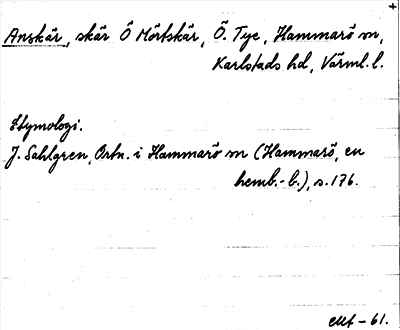 Anskär, skär Ö Mörtskär, Ö. Tye, Hammarö sn,
Karlstads hd, Värml. l.
Etymologi.
J. Sahlgren, Ortn. i Hammarö sn (Hammarö, en
hemb.-b.), s. 176.
-61.